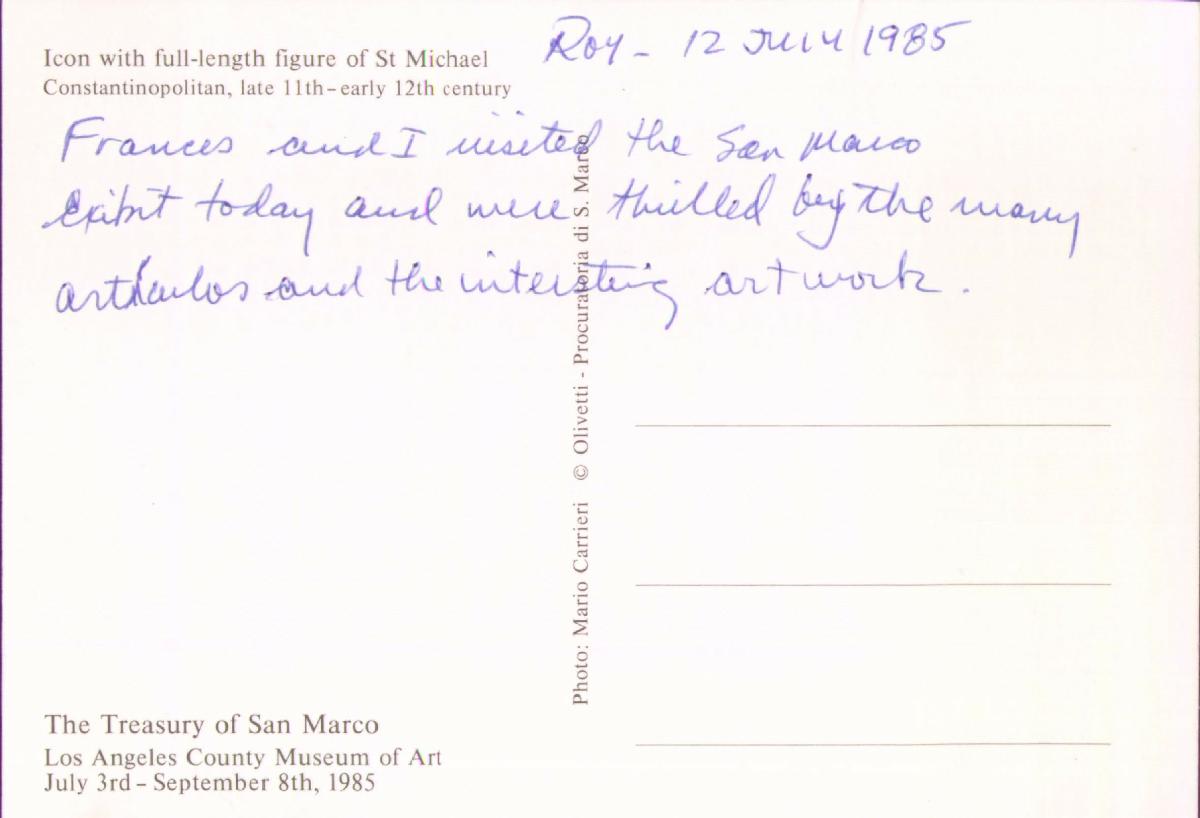 Icon with full-length figure of St Michael
Constantinopolitan, late 11th-early 12th century
Roy - 12 July 1985
Frances and I visited the San Marco
Exibit today and were thrilled by the many
artículos and the intersteing artwork.
Photo: Mario Carrieri © Olivetti - Procuratoria di S. Marco
The Treasury of San Marco
Los Angeles County Museum of Art
July 3rd - September 8th, 1985